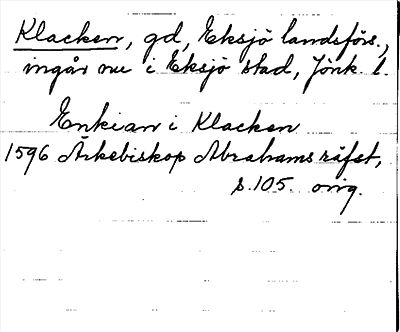 Klacken, gd, Eksjö landsförs.,
ingår nu i Eksjö stad, Jönk. l.
Enkian i Klacken
1596 Ärkebiskop Abrahams räfst,
s. 105. orig.